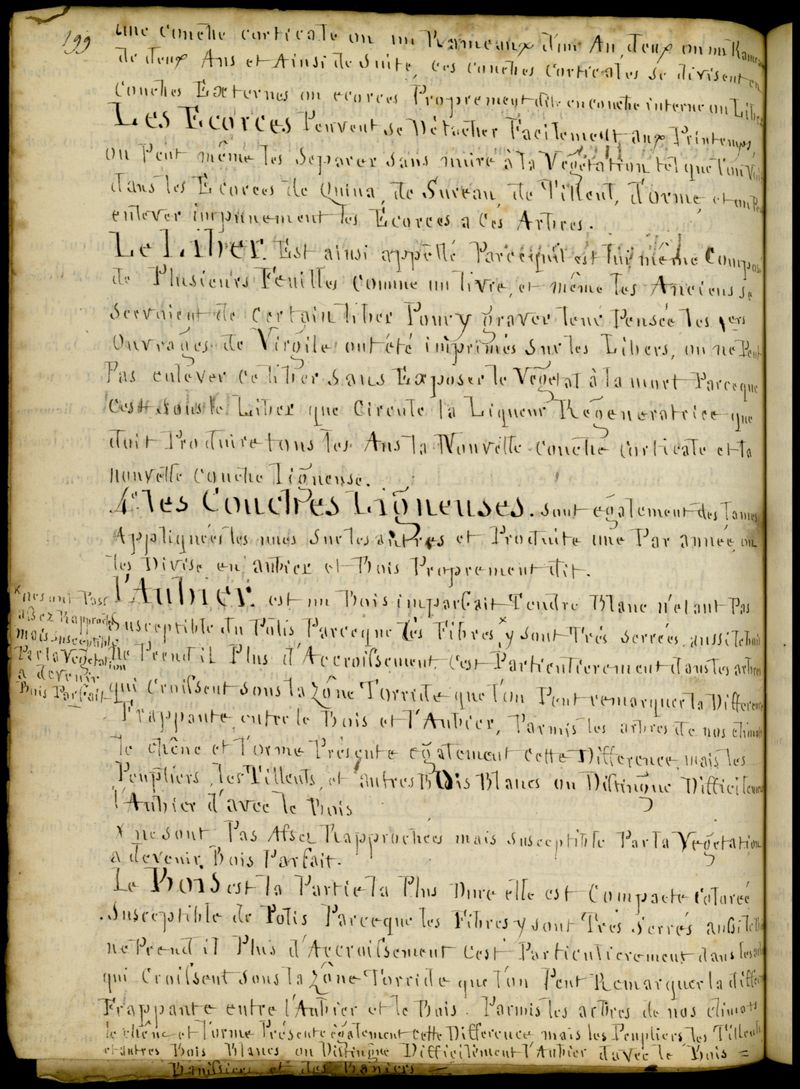 199
une Couche corticale ou un Rameaux d'un An, deux ou un Ram
de deux Ans et Ainsi de Suite, ces couches Corticales se divisent en
Couches Externes ou ecorces Proprement dite en couche interne ou Lib
Les Ecorces Peuvent se Détacher Facilement aux Printemps,
on Peut même les Separer sans nuire à la Vegétation tel que l'on Voi
dans les Ecorces de Quina, de Sureau, de Tilleul, d'orme et on Pe
enlever impunement les Ecorces a ces Arbres.
Le Liber. Est ainsi appellé Parcequil est lui même Compo
de Plusieurs Feuilles Comme un livre, et même les Anciens se
Servaient de Certain liber Pour y graver leur Pensée les 1ers
Ouvrages de Virgile ont été imprimés Sur les Libers, on ne Peut
Pas enlever ce liber sans Exposer le Vegetal à la mort Parceque
C'est sous le Liber que Circule la Liqueur Régeneratrice que
doit Produire tous les Ans la Nouvelle Couche Corticale et la
nouvelle Couche ligneuse.
4° les Couches Ligneuses. sont egalement des lames
Appliquées les unes Sur les autres et Produite une Par année, on
les Divise en aubier et Bois Proprement dit.
l'Aubier. est un Bois imparfait Tendre Blanc n'étant Pas
Susceptible du Polis, Parceque les Fibres x y sont Trés Serrées, aussi le bois
ne Prend il Plus d'Accroissement, C'est Particulierement dans les arbres
qui Croissent sous la Zône Torride que l'on Peut remarquer la Differen
Frappante entre le Bois et l'Aubier, Parmis les arbres de nos clima
le chêne et l'orme Présente égalemeut cette Difference, mais les
Peupliers, les Tilleuls, et autres Bois Blancs on Distingue Difficilement
l'Aubier d'avec le Bois
x ne sont Pas Assez Rapprochées mais susceptible Par la Vegetation
a devenir Bois Parfait.
x nesont Pas
assez Rapprochées
mais susceptible
Par la Vegetation
a devenir
Bois Parfait
Le Bois est la Partie la Plus Dure elle est Compacte Colorée
Susceptible de Polis Parceque les Fibres y sont Trés Serrés aussi le Bo
ne Prend il Plus d'Accroissement C'est Particulierement dans les ar
qui Croissent sous la Zône Torride que l'on Peut Remarquer la différ
Frappante entre l'Aubier et le Bois. Parmis les arbres de nos climats
le chêne et l'orme Présente egalement cette Difference mais les Peupliers les Tilleuls
et autres Bois Blancs on Distingue Difficilement l'Aubier d'avec le Bois =